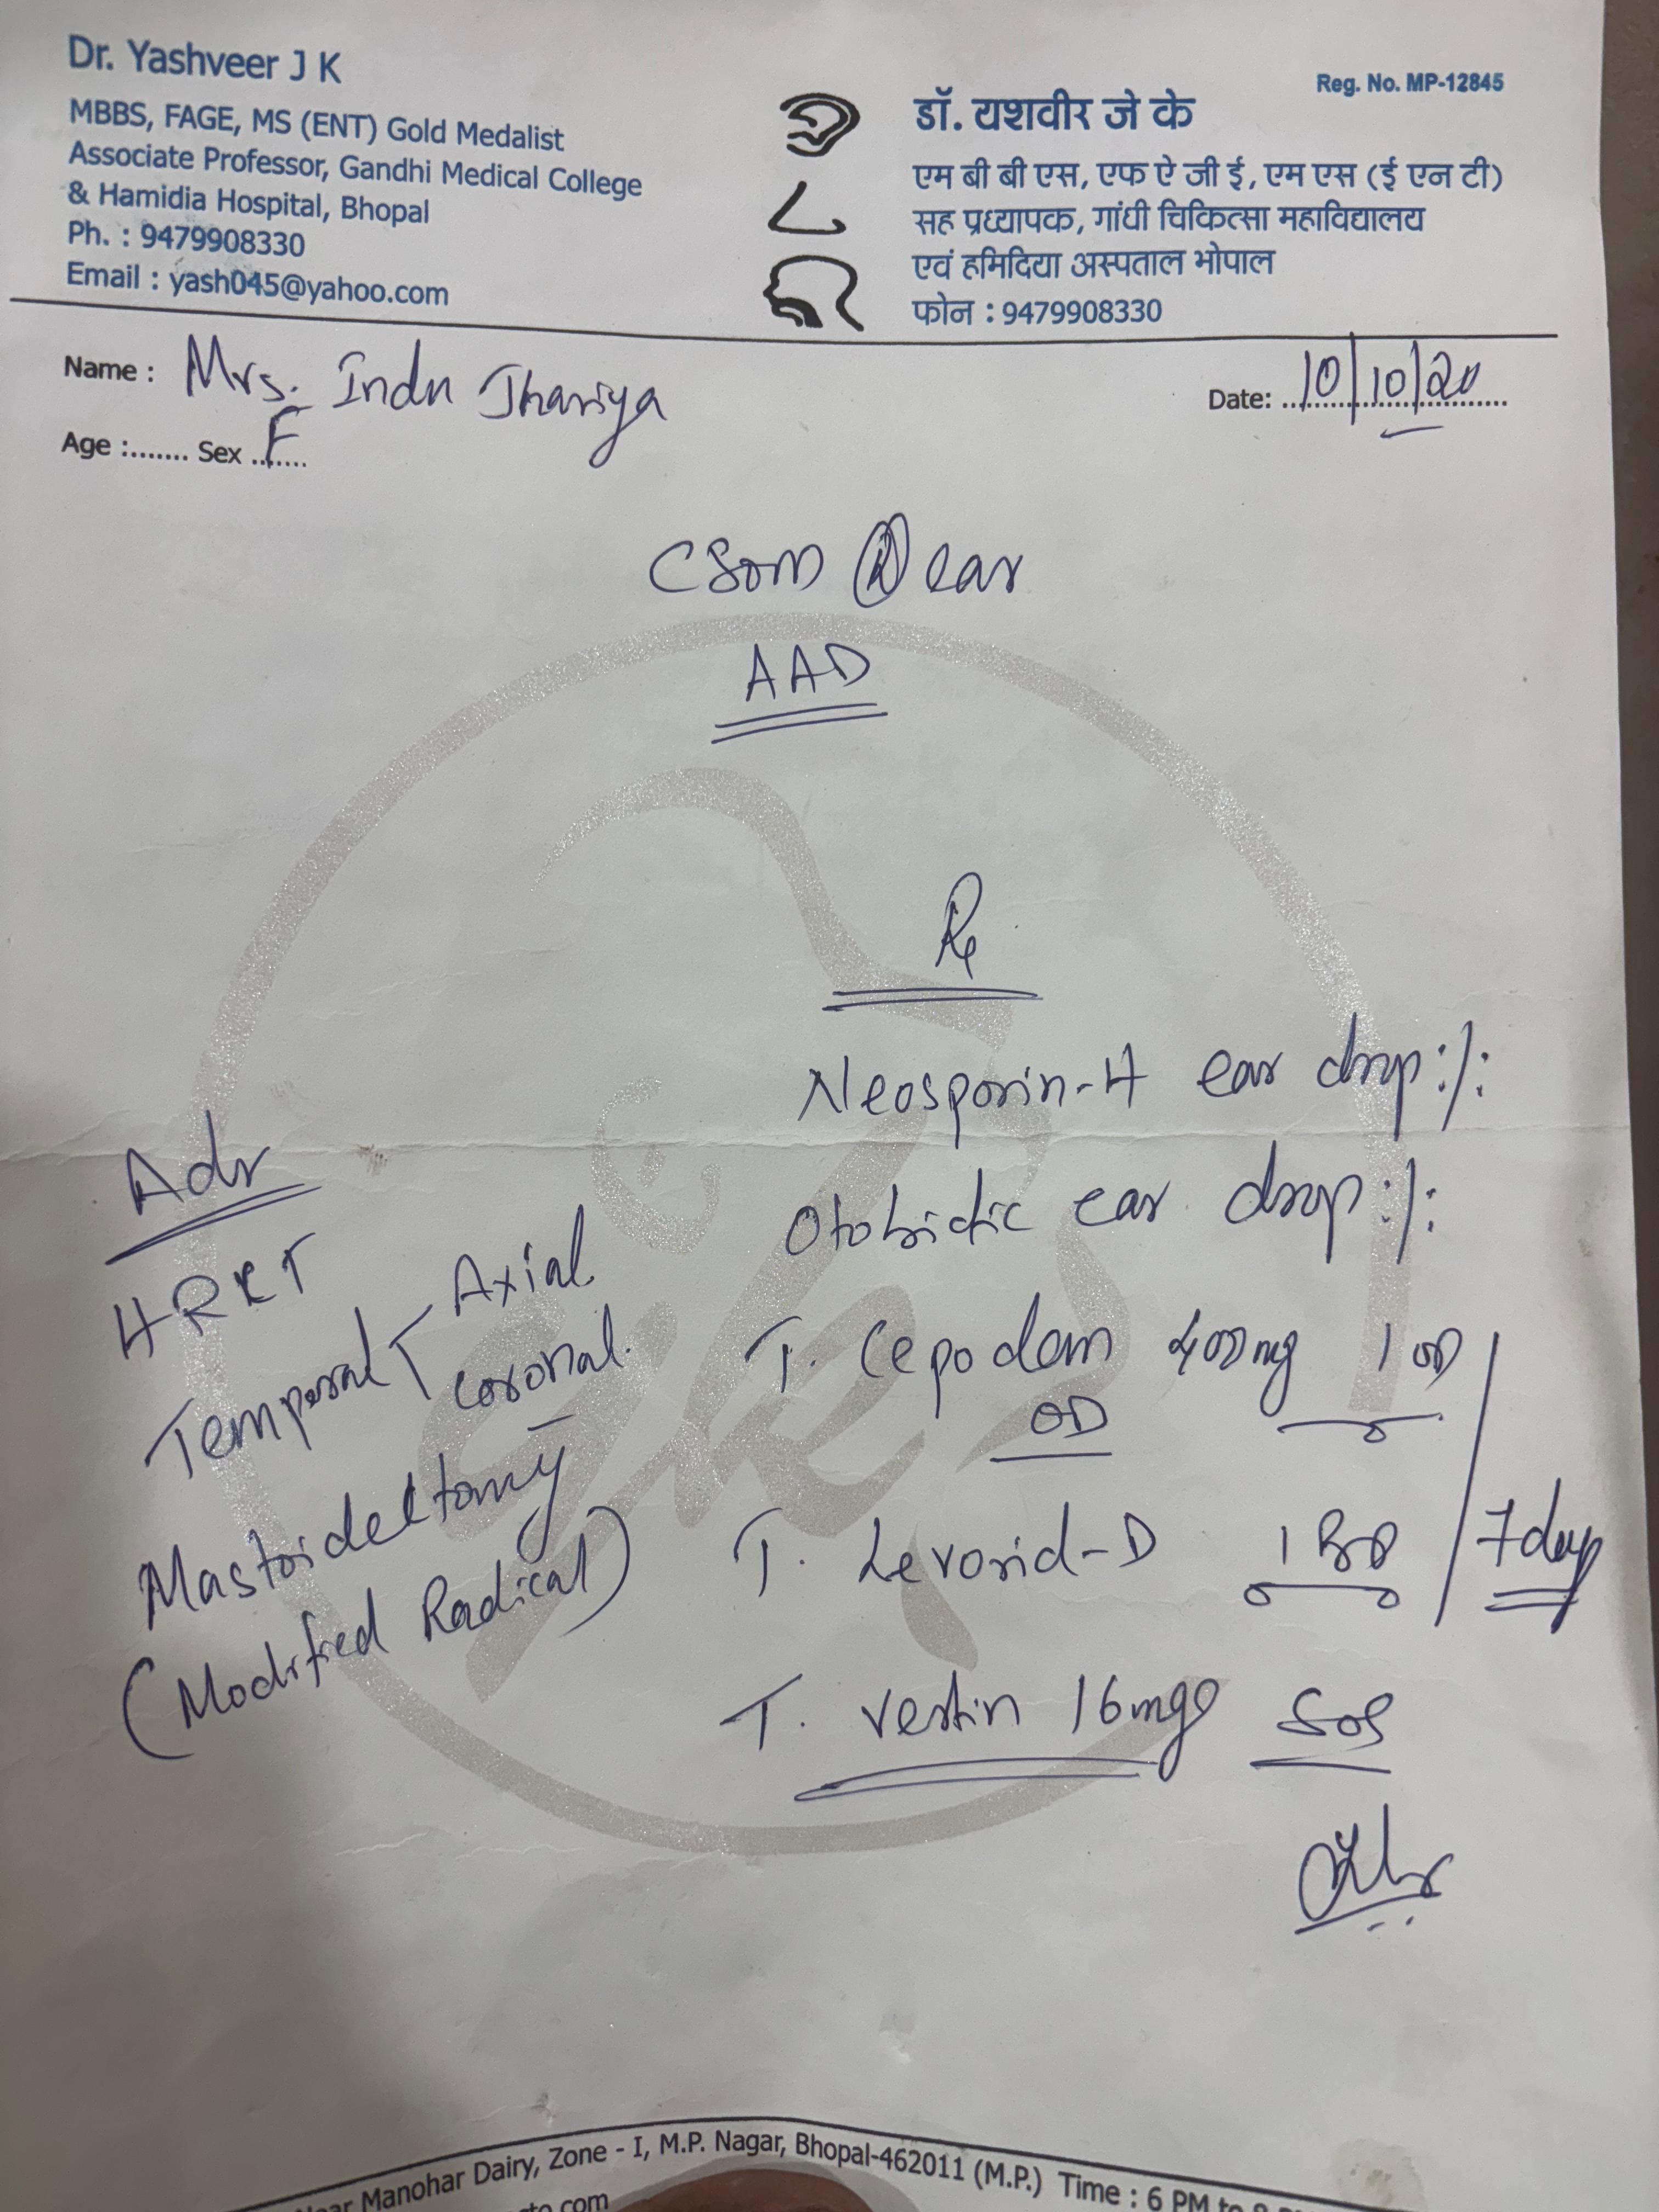 Dr. Yashveer J K
MBBS, FAGE, MS (ENT) Gold Medalist
Associate Professor, Gandhi Medical College
& Hamidia Hospital, Bhopal
Ph. : 9479908330
Email : yash045@yahoo.com
Reg. No. MP-12845
डॉ. यशवीर जे के
एम बी बी एस, एफ ऐ जी ई, एम एस (ई एन टी)
सह प्रध्यापक, गांधी चिकित्सा महाविद्यालय
एवं हमिदिया अस्पताल भोपाल
फोन : 9479908330
Name : Mrs. Indu Jhariya
Date: 10/10/20
Age :....... Sex F
CSOM ear
AAD
Rx
Neosporin-H ear drop
ear drop
T. Cepodem 400mg 1 OD
OD
T. Levorid-D 1 BD
7 days
T. Vertin 16mg SOS
Adv
HRCT
Temporal Axial
Coronal
Mastoidectomy
(Modified Radical)
Manohar Dairy, Zone - I, M.P. Nagar, Bhopal-462011 (M.P.) Time : 6 PM to